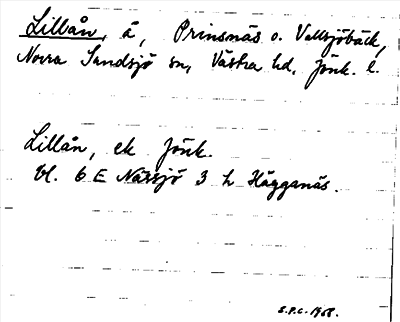 Lillån, å, Prinsnäs o. Vallsjöbäck,
Norra Sandsjö sn, Västra hd, Jönk. l.
Lillån, ek Jönk.
bl. 6 E Nässjö 3 h Hägganäs.
S.P.C. 1968.